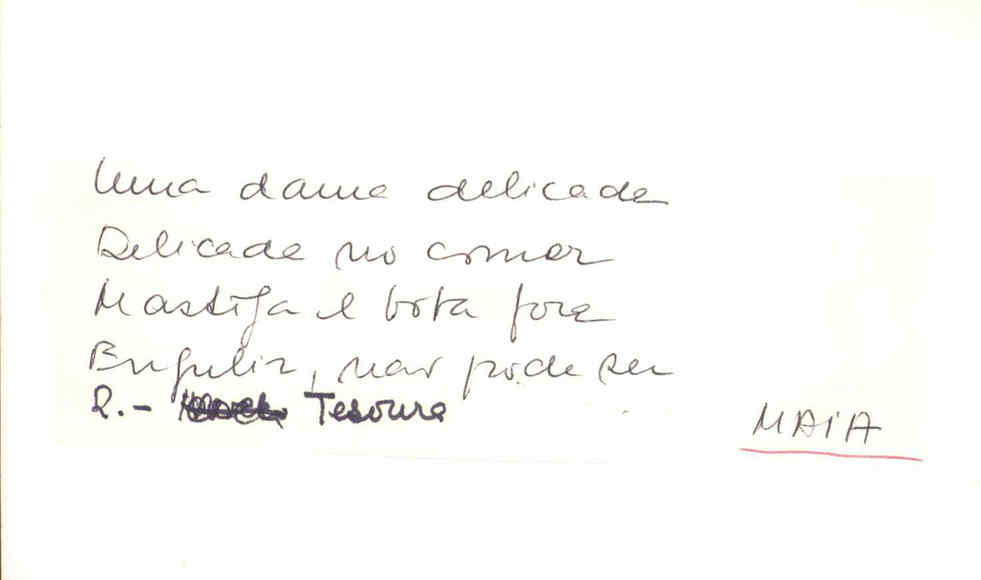 Uma dama delicada
Delicada no comer
Mastiga e bota fora
Engulir, não pode ser
R.- Tesoura
MAIA